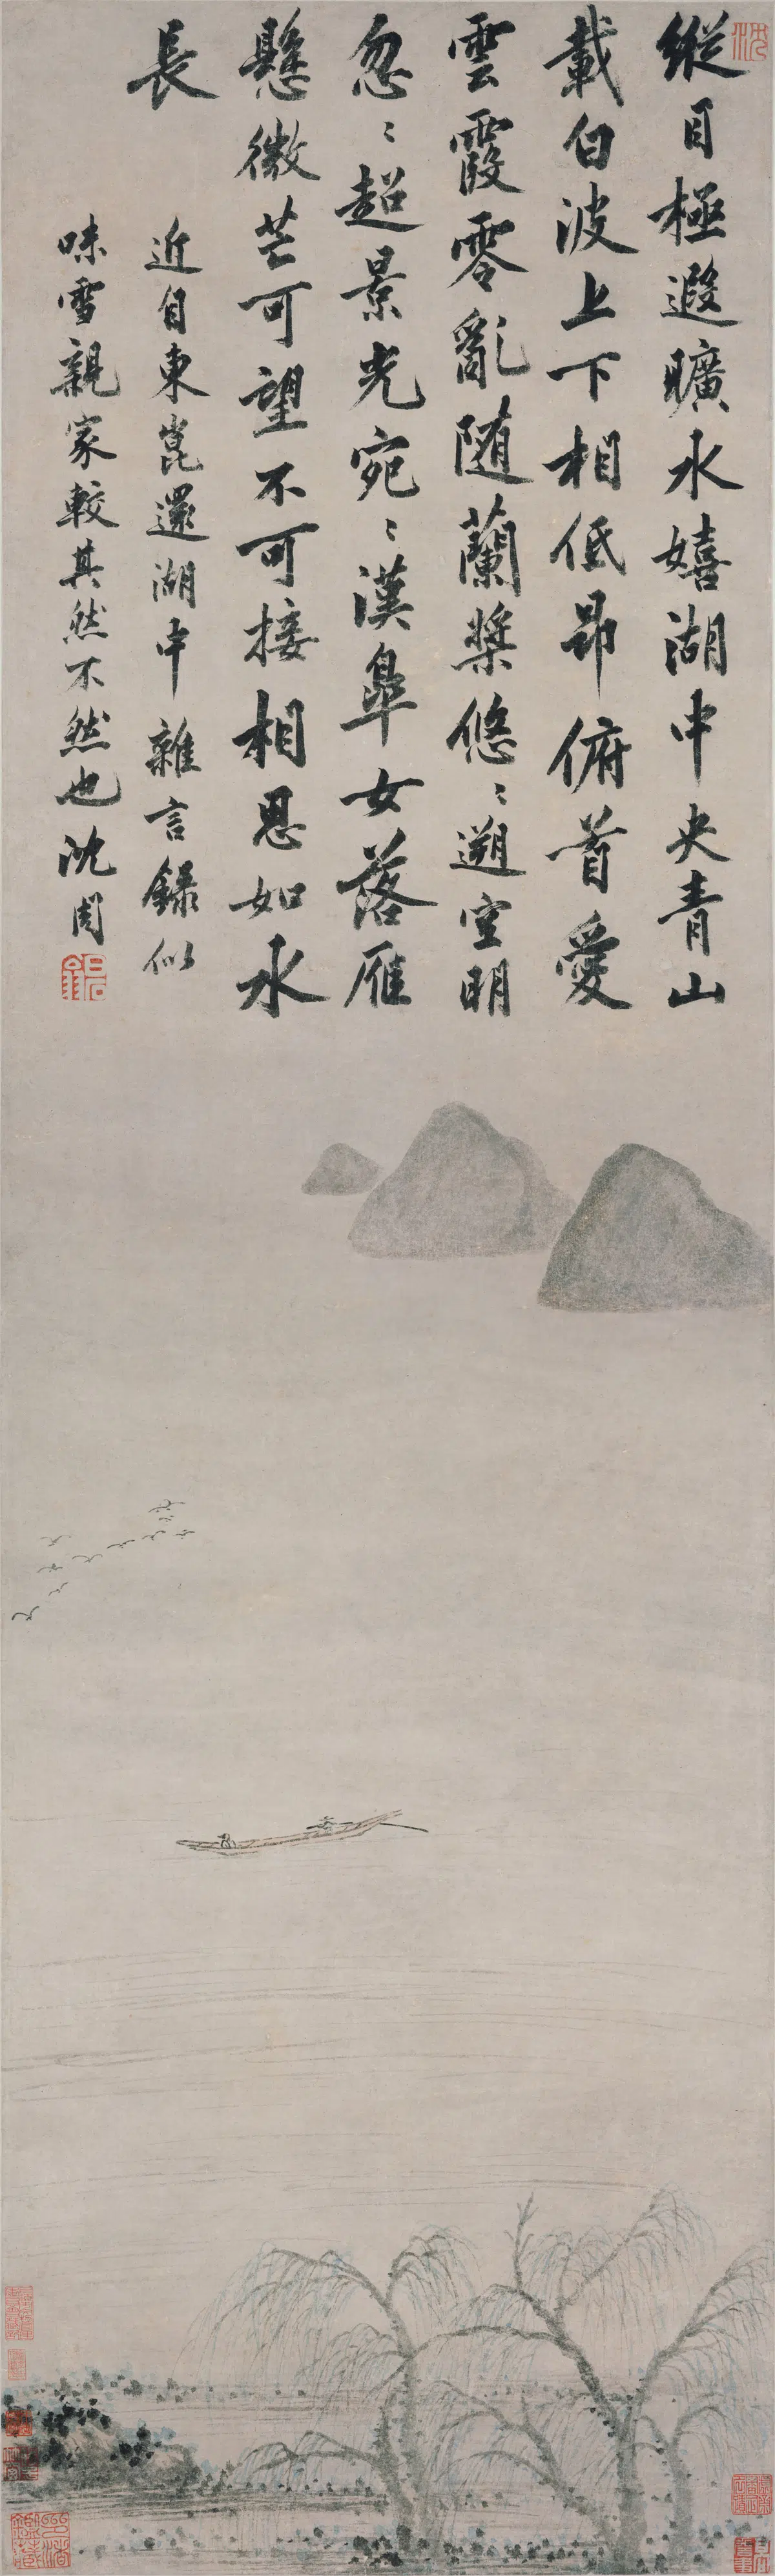 縱目極遐曠水嬉湖中央青山
載白波上下相低昂俯首愛
雲霞零亂随蘭槳悠〻遡空明
忽〻超景光宛〻漢皐女落雁
懸微芒可望不可接相思如水
長
近自東崑還湖中雜言録似
味雪親家較其然不然也沈周